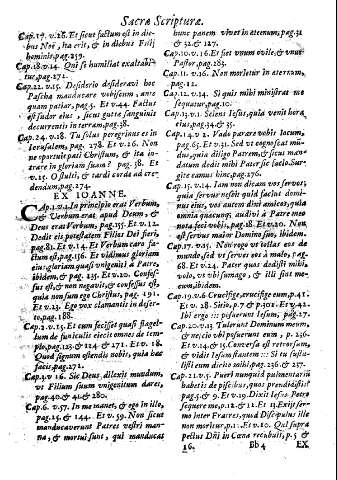 Sacræ Scripturæ.
Cap.17. v.26. Et sicut factum est in die-
bus Noë, ita erit, & in diebus Filij
hominis, pag.259.
Cap.18. v.14. Qui se humiliat exaltabi-
tur, pag.271.
Cap.22. v.15. Desiderio desideravi hoc
Pascha manducare vobiscum, ante
quam patiar, pag.5. Et v.44. Factus
est sudor eius, sicut guttæ sanguinis
decurrentis in terram, pag.38.
Cap.24. v.18. Tu solus peregrinus es in
Ierusalem, pag. 278. Et v.26. Non
ne oportuit pati Christum, & ita in-
trare in gloriam suam? pag. 58. Et
v.25. O stulti, & tardi corde ad cre-
dendum, pag.274.
EX IOANNE.
Cap.1. v.1. In principio erat Verbum,
& Verbum erat apud Deum, &
Deus erat Verbum, pag.115. Et v.12.
Dedit eis potestatem Filios Dei fieri,
pag.81. Et v.14. Et Verbum caro fa-
ctum est, pag.156. Et vidimus gloriam
eius; gloriam quasi unigeniti à Patre,
ibidem, & pag. 235. Et v.20. Confes-
sus est, & non negavit, & confessus est,
quia non sum ego Christus, pag. 191.
Et v.23. Ego vox clamantis in deser-
to, pag.188.
Cap.2. v.15. Et cum fecisset quasi flagel-
lum de funiculis eiecit omnes de tem-
plo, pag.123. & 124. & 271. Et v. 18.
Quod signum ostendis nobis, quia hæc
facis, pag.271.
Cap.3. v 16. Sic Deus dilexit mundum,
ut Filium suum unigenitum daret,
pag.40. & 41. & 280.
Cap.6. v.57. In me manet, & ego in illo,
pag.25. & 144. Et v.59. Non sicut
manducaverunt Patres vestri man-
na, & mortui sunt, qui manducat
hunc panem vivet in æternum, pag.31
& 32. & 127.
Cap.10. v.16. Et fiet unum ovile, & unus
Pastor, pag.283.
Cap.11. v.26. Non morietur in æternum,
pag.12.
Cap.12. v.14. Si quis mihi ministrat me
sequatur, pag.10.
Cap.13. v.1. Sciens Iesus, quia venit hora
eius, pag.34. & 35.
Cap.14. v 2. Vado parare vobis locum,
pag.65. Et v.31. Sed ut cognoscat mũ-
dus, quia diligo Patrem, & sicut man-
datum dedit mihi Pater sic facio. Sur-
gite eamus hinc, pag.276.
Cap.15. v.14. Iam non dicam vos servos,
quia servus nescit quid faciat domi-
nus eius, vos autem dixi amicos, quia
omnia quæcunq; audivi à Patre meo
nota feci vobis, pag.18. Et v.20. Non
est servus maior Domino suo, ibidem.
Cap.17. v.15. Non rogo ut tollas eos de
mundo, sed ut serves eos à malo, pag.
68. Et v.24. Pater quos dedisti mihi,
volo, ut ubi sum ego, & illi sint me-
cum, ibidem.
Cap.19. v.6 Crucifige, crucifige eum, p.41.
Et v. 28. Sitio, p.7 & p.301. Et v.42.
Ibi ergo ::: posuerunt Iesum, pag.17.
Cap.20. v.13 Tulerunt Dominum meum,
& nescio ubi posuerunt eum, p. 236.
Et v.14. & 15. Conversa est retrorsum,
& vidit Iesum stantem ::: Si tu sustu-
listi eum dicito mihi, pag.236. & 257.
Cap.21. v.5. Pueri nunquid pulmentariũ
habetis de piscibus, quos prendidistis?
pag.5. & 9. Et v.19. Dixit Iesus Petro
sequere me, p.12. & 11. Et 23. Exijt ser-
mo inter Fratres, quod Discipulus ille
non moritur, p.11. Et v.20. Qui supra
pectus Dñi in Cœna recubuit, p.5. &
16. Bb 4 EX